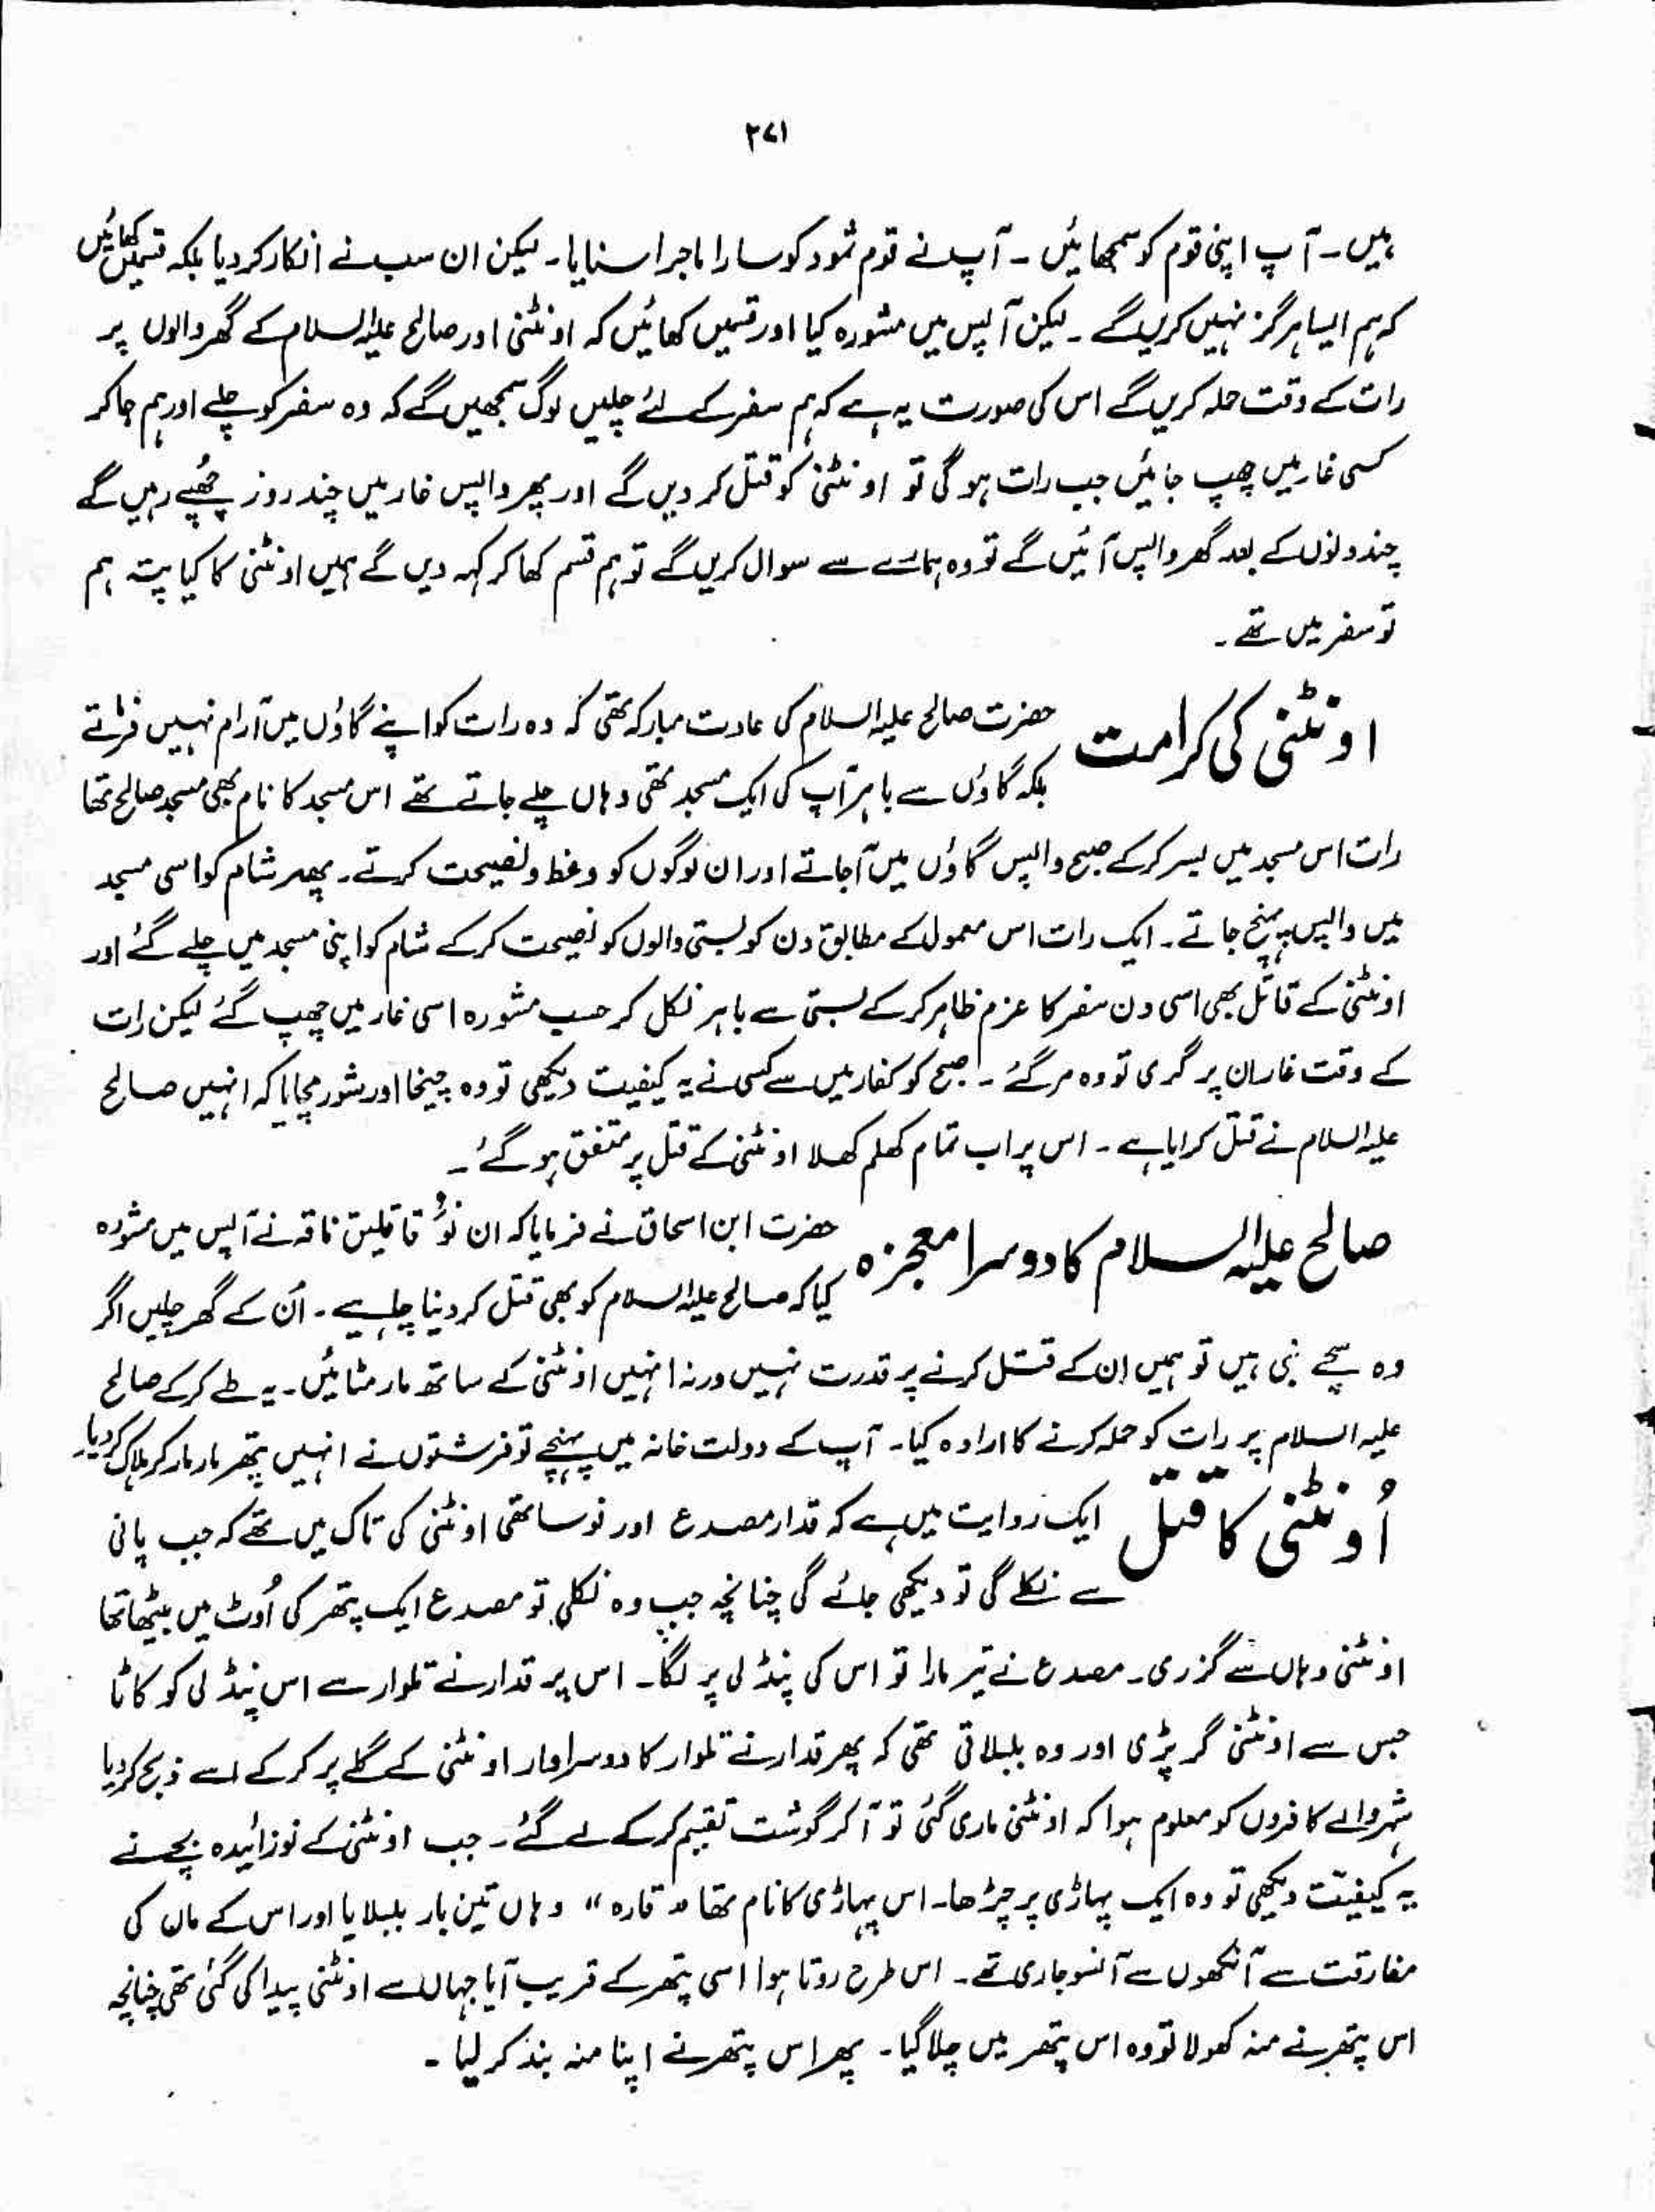 ۲۷۱
ہیں۔ آپ اپنی قوم کو سمجھائیں۔ آپ نے قوم ثمود کو سارا ماجرا سنایا۔ لیکن ان سب نے انکار کر دیا بلکہ قسمیں کھائیں
کہ ہم ایسا ہرگز نہیں کریں گے۔ لیکن آپس میں مشورہ کیا اور قسمیں کھائیں کہ اونٹنی اور صالح علیہ السلام کے گھر والوں پر
رات کے وقت حملہ کریں گے اس کی صورت یہ ہے کہ ہم سفر کے لئے چلیں لوگ سمجھیں گے کہ وہ سفر کو چلے اور ہم جا کر
کسی غار میں چھپ جائیں جب رات ہو گی تو اونٹنی کو قتل کر دیں گے اور پھر واپس غار میں چند روز چھُپے رہیں گے
چند دنوں کے بعد گھر واپس آئیں گے تو وہ ہمارے سے سوال کریں گے تو ہم قسم کھا کر کہہ دیں گے ہمیں اونٹنی کا کیا پتہ ہم
تو سفر میں تھے۔
اونٹنی کی کرامت حضرت صالح علیہ السلام کی عادت مبارکہ تھی کہ وہ رات کو اپنے گاؤں میں آرام نہیں فرماتے
بلکہ گاؤں سے باہر آپ کی ایک مسجد تھی وہاں چلے جاتے تھے اس مسجد کا نام بھی مسجد صالح تھا
رات اس مسجد میں بسر کر کے صبح واپس گاؤں میں آجاتے اور ان لوگوں کو وعظ و نصیحت کرتے۔ پھر شام کو اسی مسجد
میں واپس پہنچ جاتے۔ ایک رات اس معمول کے مطابق دن کو بستی والوں کو نصیحت کر کے شام کو اپنی مسجد میں چلے گئے اور
اونٹنی کے قاتل بھی اسی دن سفر کا عزم ظاہر کر کے بستی سے باہر نکل کر حسب مشورہ اسی غار میں چھپ گئے لیکن رات
کے وقت غار ان پر گری تو وہ مر گئے۔ صبح کو کفار میں سے کسی نے یہ کیفیت دیکھی تو وہ چیخا اور شور مچایا کہ انہیں صالح
علیہ السلام نے قتل کرایا ہے۔ اس پر اب تمام کھلم کھلا اونٹنی کے قتل پر متفق ہو گئے۔
صالح علیہ السلام کا دوسرا معجزہ حضرت ابن اسحاق نے فرمایا کہ ان نَوُ قاتلین ناقہ نے آپس میں مشورہ
کیا کہ صالح علیہ السلام کو بھی قتل کر دینا چاہیے۔ اُن کے گھر چلیں اگر
وہ سچے نبی ہیں تو ہمیں ان کے قتل کرنے پر قدرت نہیں ورنہ انہیں اونٹنی کے ساتھ مار مٹائیں۔ یہ طے کر کے صالح
علیہ السلام پر رات کو حملہ کرنے کا ارادہ کیا۔ آپ کے دولت خانہ میں پہنچے تو فرشتوں نے انہیں پتھر مار مار کر ہلاک کر دیا۔
اُونٹنی کا قتل ایک روایت میں ہے کہ قدار مصدع اور نو ساتھی اونٹنی کی تاک میں تھے کہ جب پانی
سے نکلے گی تو دیکھی جائے گی چنانچہ جب وہ نکلی تو مصدع ایک پتھر کی اُوٹ میں بیٹھا تھا
اونٹنی وہاں سے گزری۔ مصدع نے تیر مارا تو اس کی پنڈلی پر لگا۔ اس پر قدار نے تلوار سے اس پنڈلی کو کاٹا
جس سے اونٹنی گر پڑی اور وہ بلبلاتی تھی کہ پھر قدار نے تلوار کا دوسرا وار اونٹنی کے گلے پر کر کے اسے ذبح کر دیا
شہر والے کافروں کو معلوم ہوا کہ اونٹنی ماری گئی تو آ کر گوشت تقسیم کر کے لے گئے۔ جب اونٹنی کے نوزائیدہ بچے نے
یہ کیفیّت دیکھی تو وہ ایک پہاڑی پر چڑھا۔ اس پہاڑی کا نام تھا " قارہ " وہاں تین بار بلبلایا اور اس کے ماں کی
مفارقت سے آنکھوں سے آنسو جاری تھے۔ اس طرح روتا ہوا اسی پتھر کے قریب آیا جہاں سے اونٹنی پیدا کی گئی تھی چنانچہ
اس پتھر نے منہ کھولا تو وہ اس پتھر میں چلا گیا۔ پھر اس پتھر نے اپنا منہ بند کر لیا۔